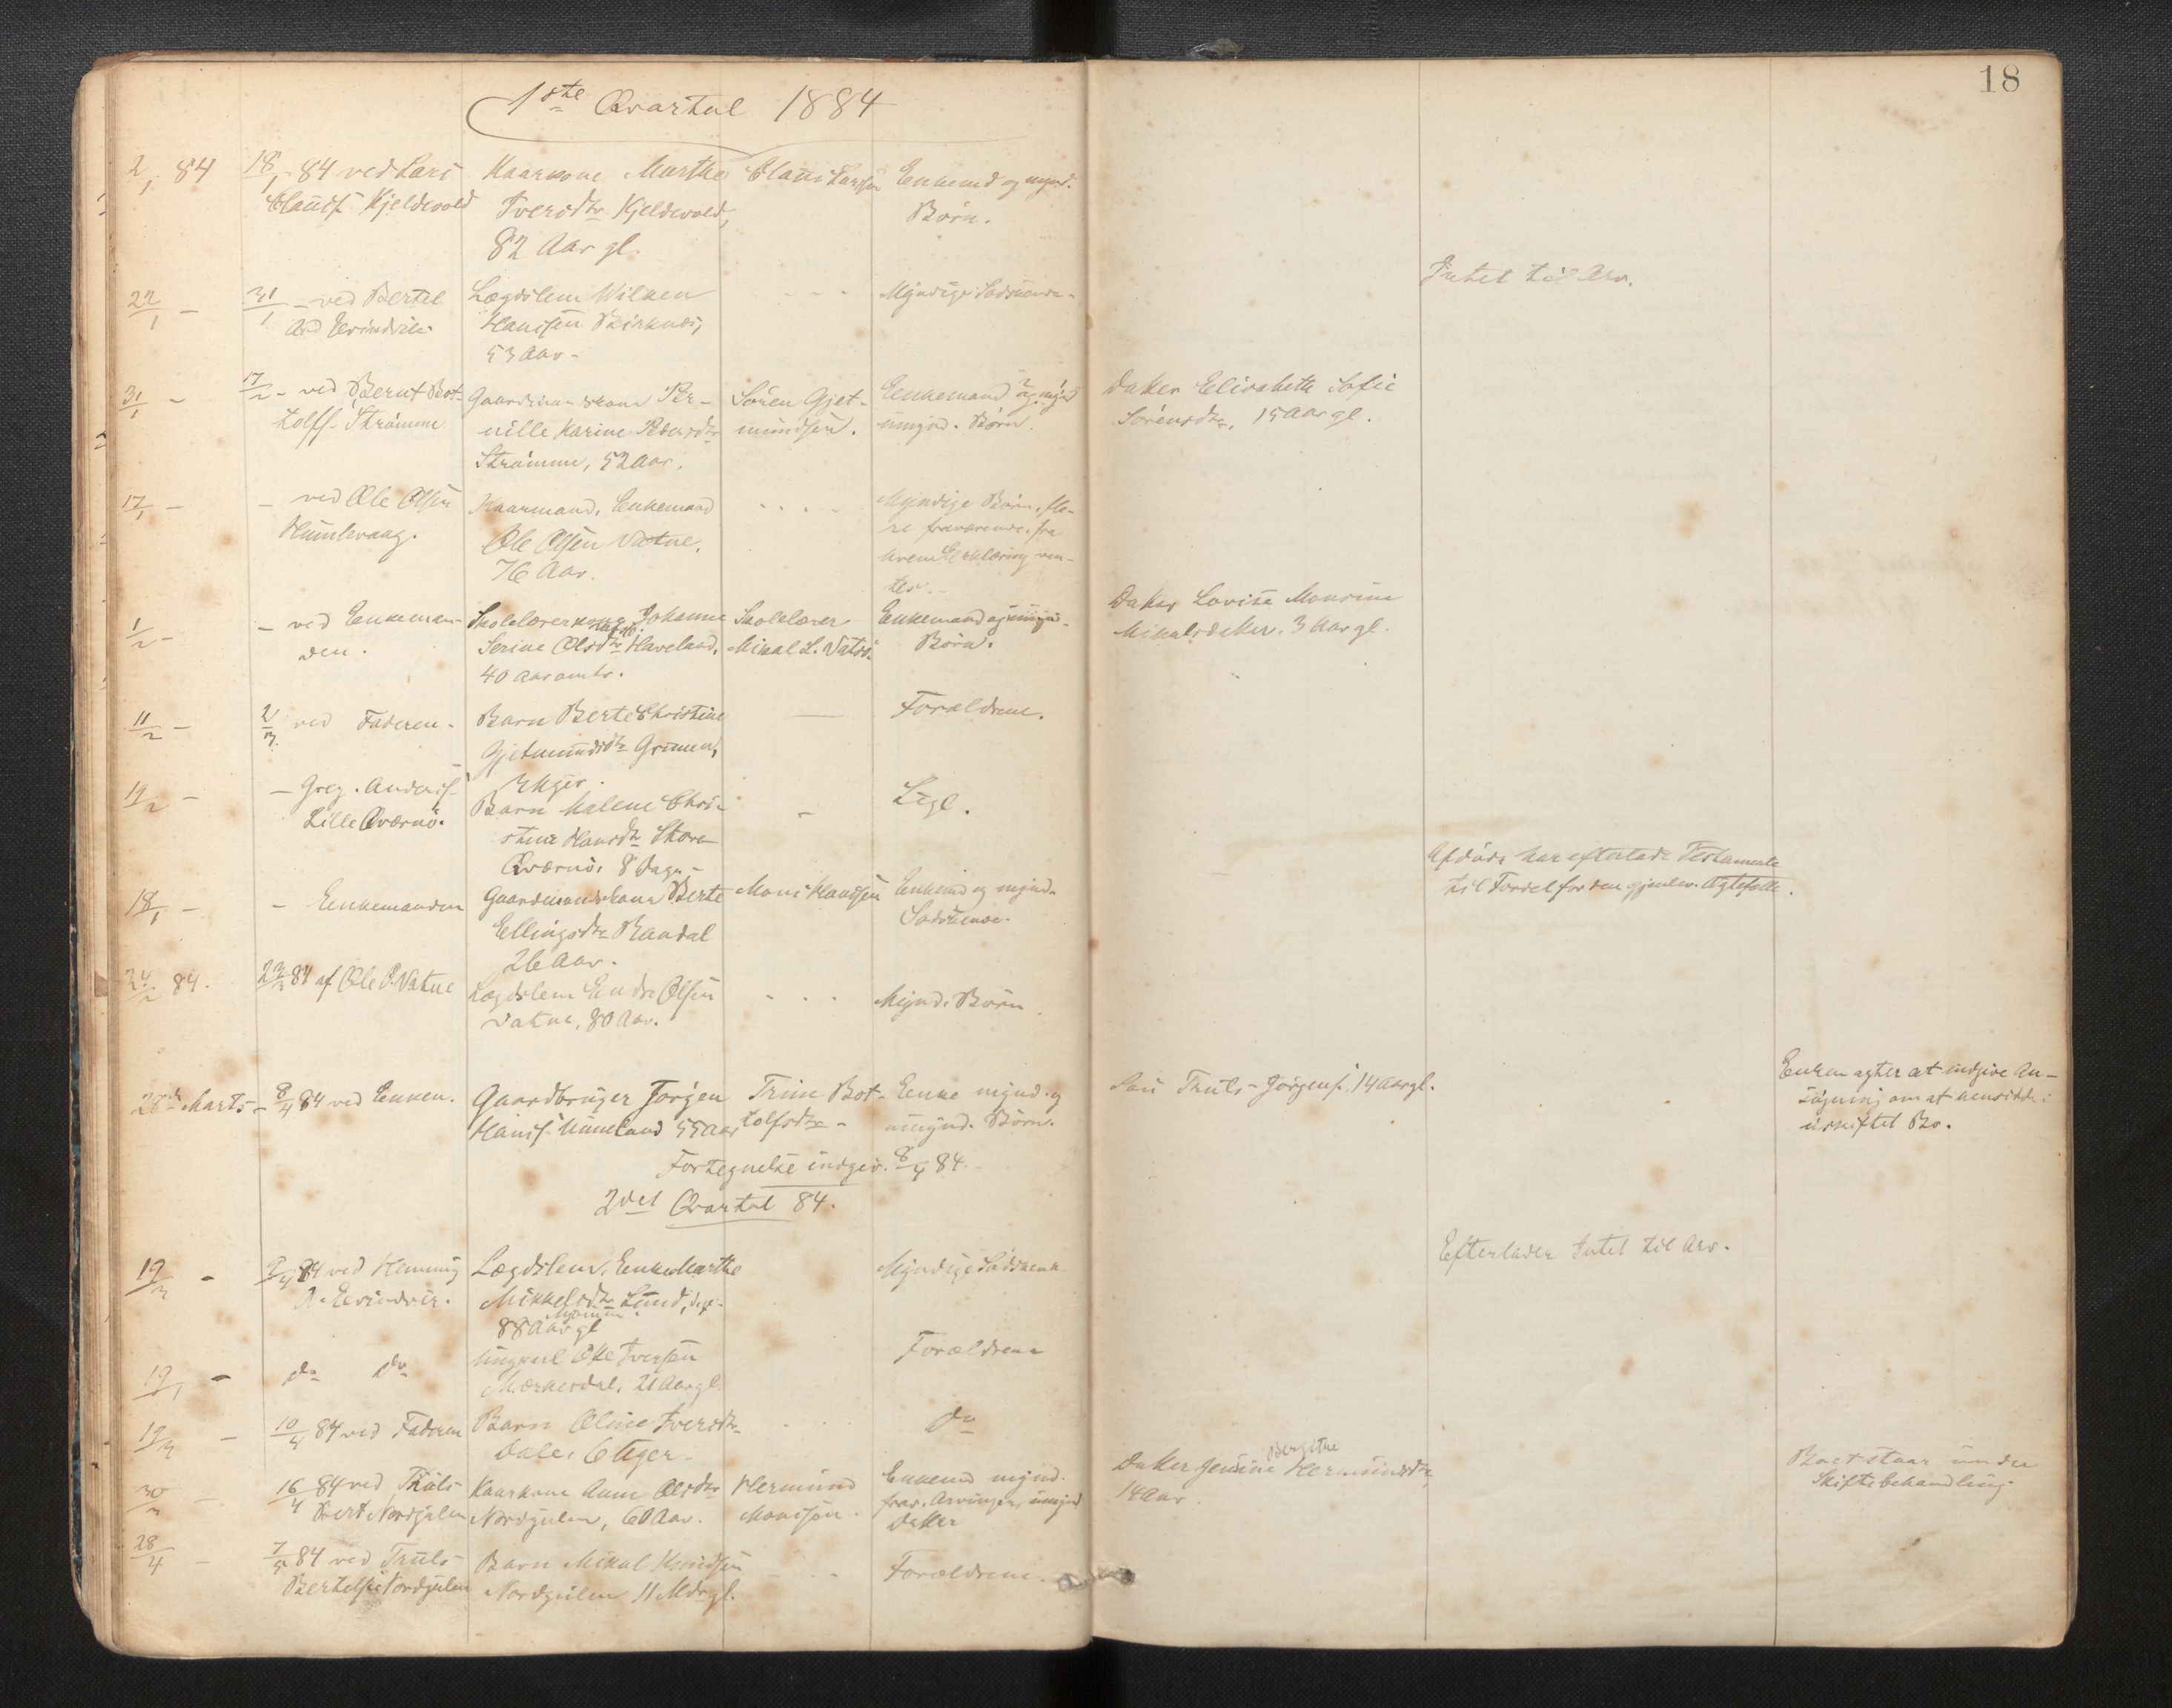 18
1ste Qvartal 1884
2/1 84
18/1 84 ved Lars
Claus. Kjeldevold
Kaarkone Marthe
Iversdtr Kjeldevold,
82 Aar gl.
Claus Larsen
Enkemd og mynd.
Börn.
22/1 -
31/1 - ved Bertel
And Evindvik
Lægdslem Wilken
Hansen Birknes,
53 Aar -
- - -
Myndige Södskende
Intet til Arv.
31/1 -
17/2 - ved Bernt Bot-
tolfs. Strömme
Gaardmandskone Per-
nille Karine Pedersdtr
Strömme, 52 Aar.
Sören Gjet-
mundsen.
Enkemand og mynd
umynd. Börn.
Datter Elisabeth Sofie
Sörensdtr, 15 Aar gl.
17/1 -
- ved Ole Olsen
Humlevaag.
Kaarmand, Enkemand
Ole Olsen Vatne,
76 Aar.
- - - -
Myndige Börn, fle-
re fraværende, fra
hvem Erklæring ven-
tes. -
1/2 -
- ved Enkeman-
den.
Skolelærerkone Johanne
Serine Olsdtr Haveland,
40 Aar omtr.
Skolelærer
Mikal L. Vatsö.
Enkemand og umynd.
Börn.
Datter Lovise Monsine
Mikalsdatter, 3 Aar gl.
11/2 -
2/3 ved Faderen -
Barn Berte Christine
Gjetmundsdtr
3 Uger.
Forældrene.
14/2 -
- Greg. Anders.
Lille Qværnö.
Barn Malene Chri-
stine Hansdtr Store
Qværnö, 8 Dage -
-
Lgl.
18/1 -
- Enkemanden
Gaardmandskone Berte
Ellingsdtr Randal
26 Aar.
Mons Hansen
Enkemd og mynd.
Södskende.
Afdöde har efterladt Testamente
til Fordel for den gjenlev. Ægtefælle.
24/2 84.
22/3 84 af Ole P. Vatne
Lægdslem Endre Olsen
Vatne, 80 Aar.
- - -
Mynd. Börn
28de Marts -
8/4 84 ved Enken.
Gaardbruger Jörgen
Hans. 55 Aar
Trine Bot-
tolfsdtr -
Enke mynd. og
umynd. Börn.
Sön Truls Jörgens. 14 Aar gl.
Enken agter at indgive An-
sögning om at hensidde i
uskiftet Bo.
Fortegnelse indgiv. 8/4 84. -
2det Qvartal 84.
19/3 -
9/4 84 ved Henning
A. Evindvik.
Lægdslem, Enke Marthe
Mikkelsdtr Lund,
88 Aar gl
Myndige Södskende
Efterlader Intet til Arv.
19/1 -
do do
Ungkarl Ole Iversen
Mærkesdal, 21 Aar gl.
Forældrene
19/3 -
10/4 84 ved Faderen
Barn Oline Iversdtr
Dale, 6 Uger -
- - -
do
30/3 -
16/4 84 ved Truls
Bert Nordgulen
Kaarkone Anne Olsdtr
Nordgulen, 60 Aar.
Hermund
Monssen.
Enkemd mynd.
frav. Arvinger, umynd
Datter
Datter Jensine Bergitte Hermundsdtr,
14 Aar.
Boet staar under
Skiftebehandling
28/4 -
7/5 84 ved Truls
Bertelsen Nordgulen
Barn Mikal Knudsen
Nordgulen 11 Mdr gl.
- - -
Forældrene.